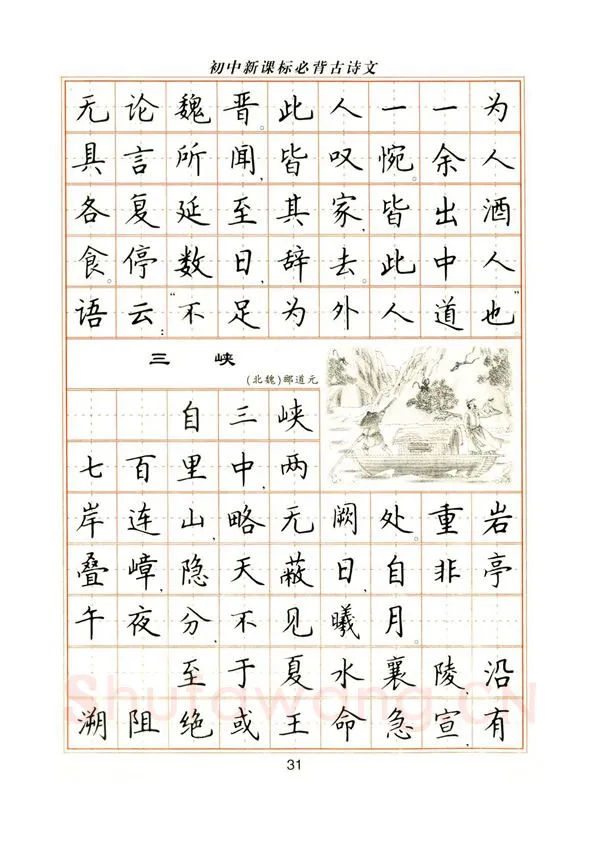 初中新课标必背古诗文
无论魏晋。此人一一为
具言所闻,皆叹惋。余人
各复延至其家,皆出酒
食。停数日,辞去。此中人
语云:“不足为外人道也”
三 峡
(北魏)郦道元
自三峡
七百里中,两
岸连山,略无阙处。重岩
叠嶂,隐天蔽日,自非亭
午夜分,不见曦月。
至于夏水襄陵,沿
溯阻绝或王命急宣,有
31
Shufawang.CN